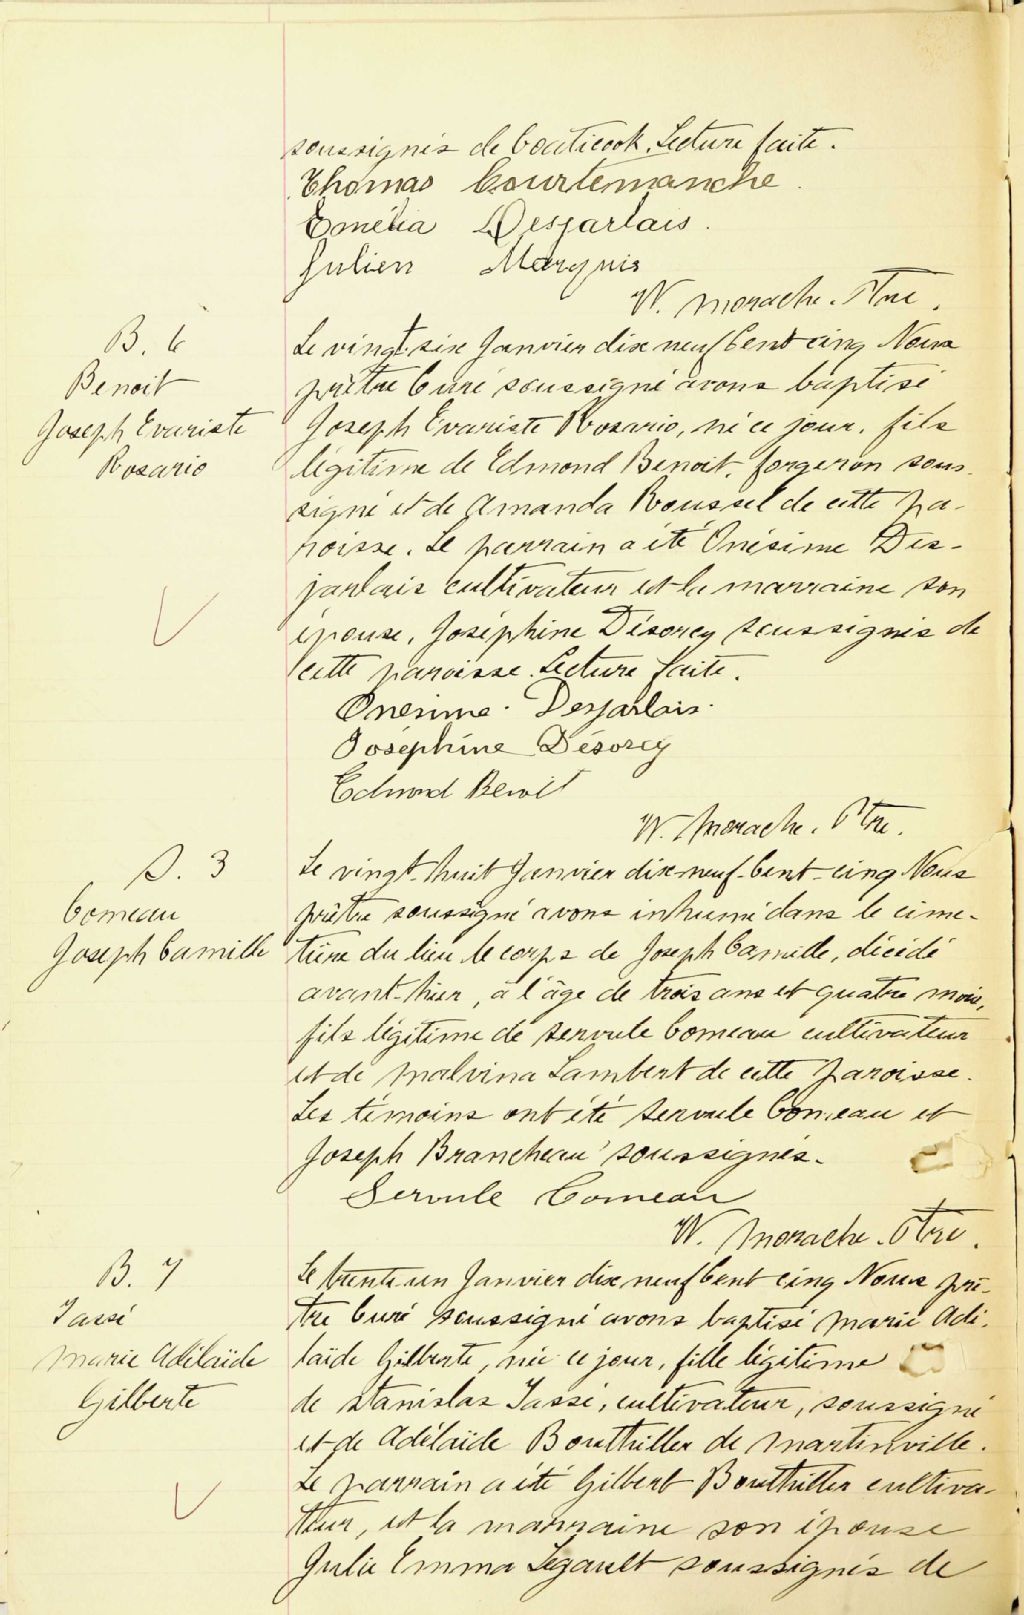 soussignés de Coaticook. Lecture faite.
Thomas Courtemanche.
Emélia Desjarlais.
Julien Marquis
W. Morache. Ptre.
B. 6
Benoit
Joseph Evariste
Rosario
Le vingt-six Janvier dix neuf Cent cinq Nous
prêtre Curé soussigné avons baptisé
Joseph Evariste Rosario, né ce jour, fils
légitime de Edmond Benoit, forgeron sous-
signé et de Amanda Roussel de cette pa-
roisse. Le parrain a été Onésime Des-
jarlais cultivateur et la marraine son
épouse, Joséphine Désorcy soussignés de
cette paroisse. Lecture faite.
Onesime Desjarlais.
Joséphine Désorcy
Edmond Benoit
W. Morache. Ptre.
S. 3
Comeau
Joseph Camille
Le vingt-huit Janvier dix-neuf-Cent-cinq Nous
prêtre soussigné avons inhumé dans le cime-
tière du lieu le corps de Joseph Camille, décédé
avant-hier, à l'âge de trois ans et quatre mois,
fils légitime de Servule Comeau cultivateur
et de Malvina Lambert de cette paroisse.
Les témoins ont été Servule Comeau et
Joseph Brancheau soussignés.
Servule Comeau
W. Morache. Ptre.
B. 7
Tassé
Marie Adélaïde
Gilberte
Le trente-un Janvier dix neuf Cent cinq Nous prê-
tre Curé soussigné avons baptisé Marie Adé-
laïde Gilberte, née ce jour, fille légitime
de Stanislas Tassé, cultivateur, soussigné
et de Adélaïde Bouthiller de Martinville.
Le parrain a été Gilbert Bouthiller cultiva-
teur, et la marraine son épouse
Julie Emma Legault soussignés de